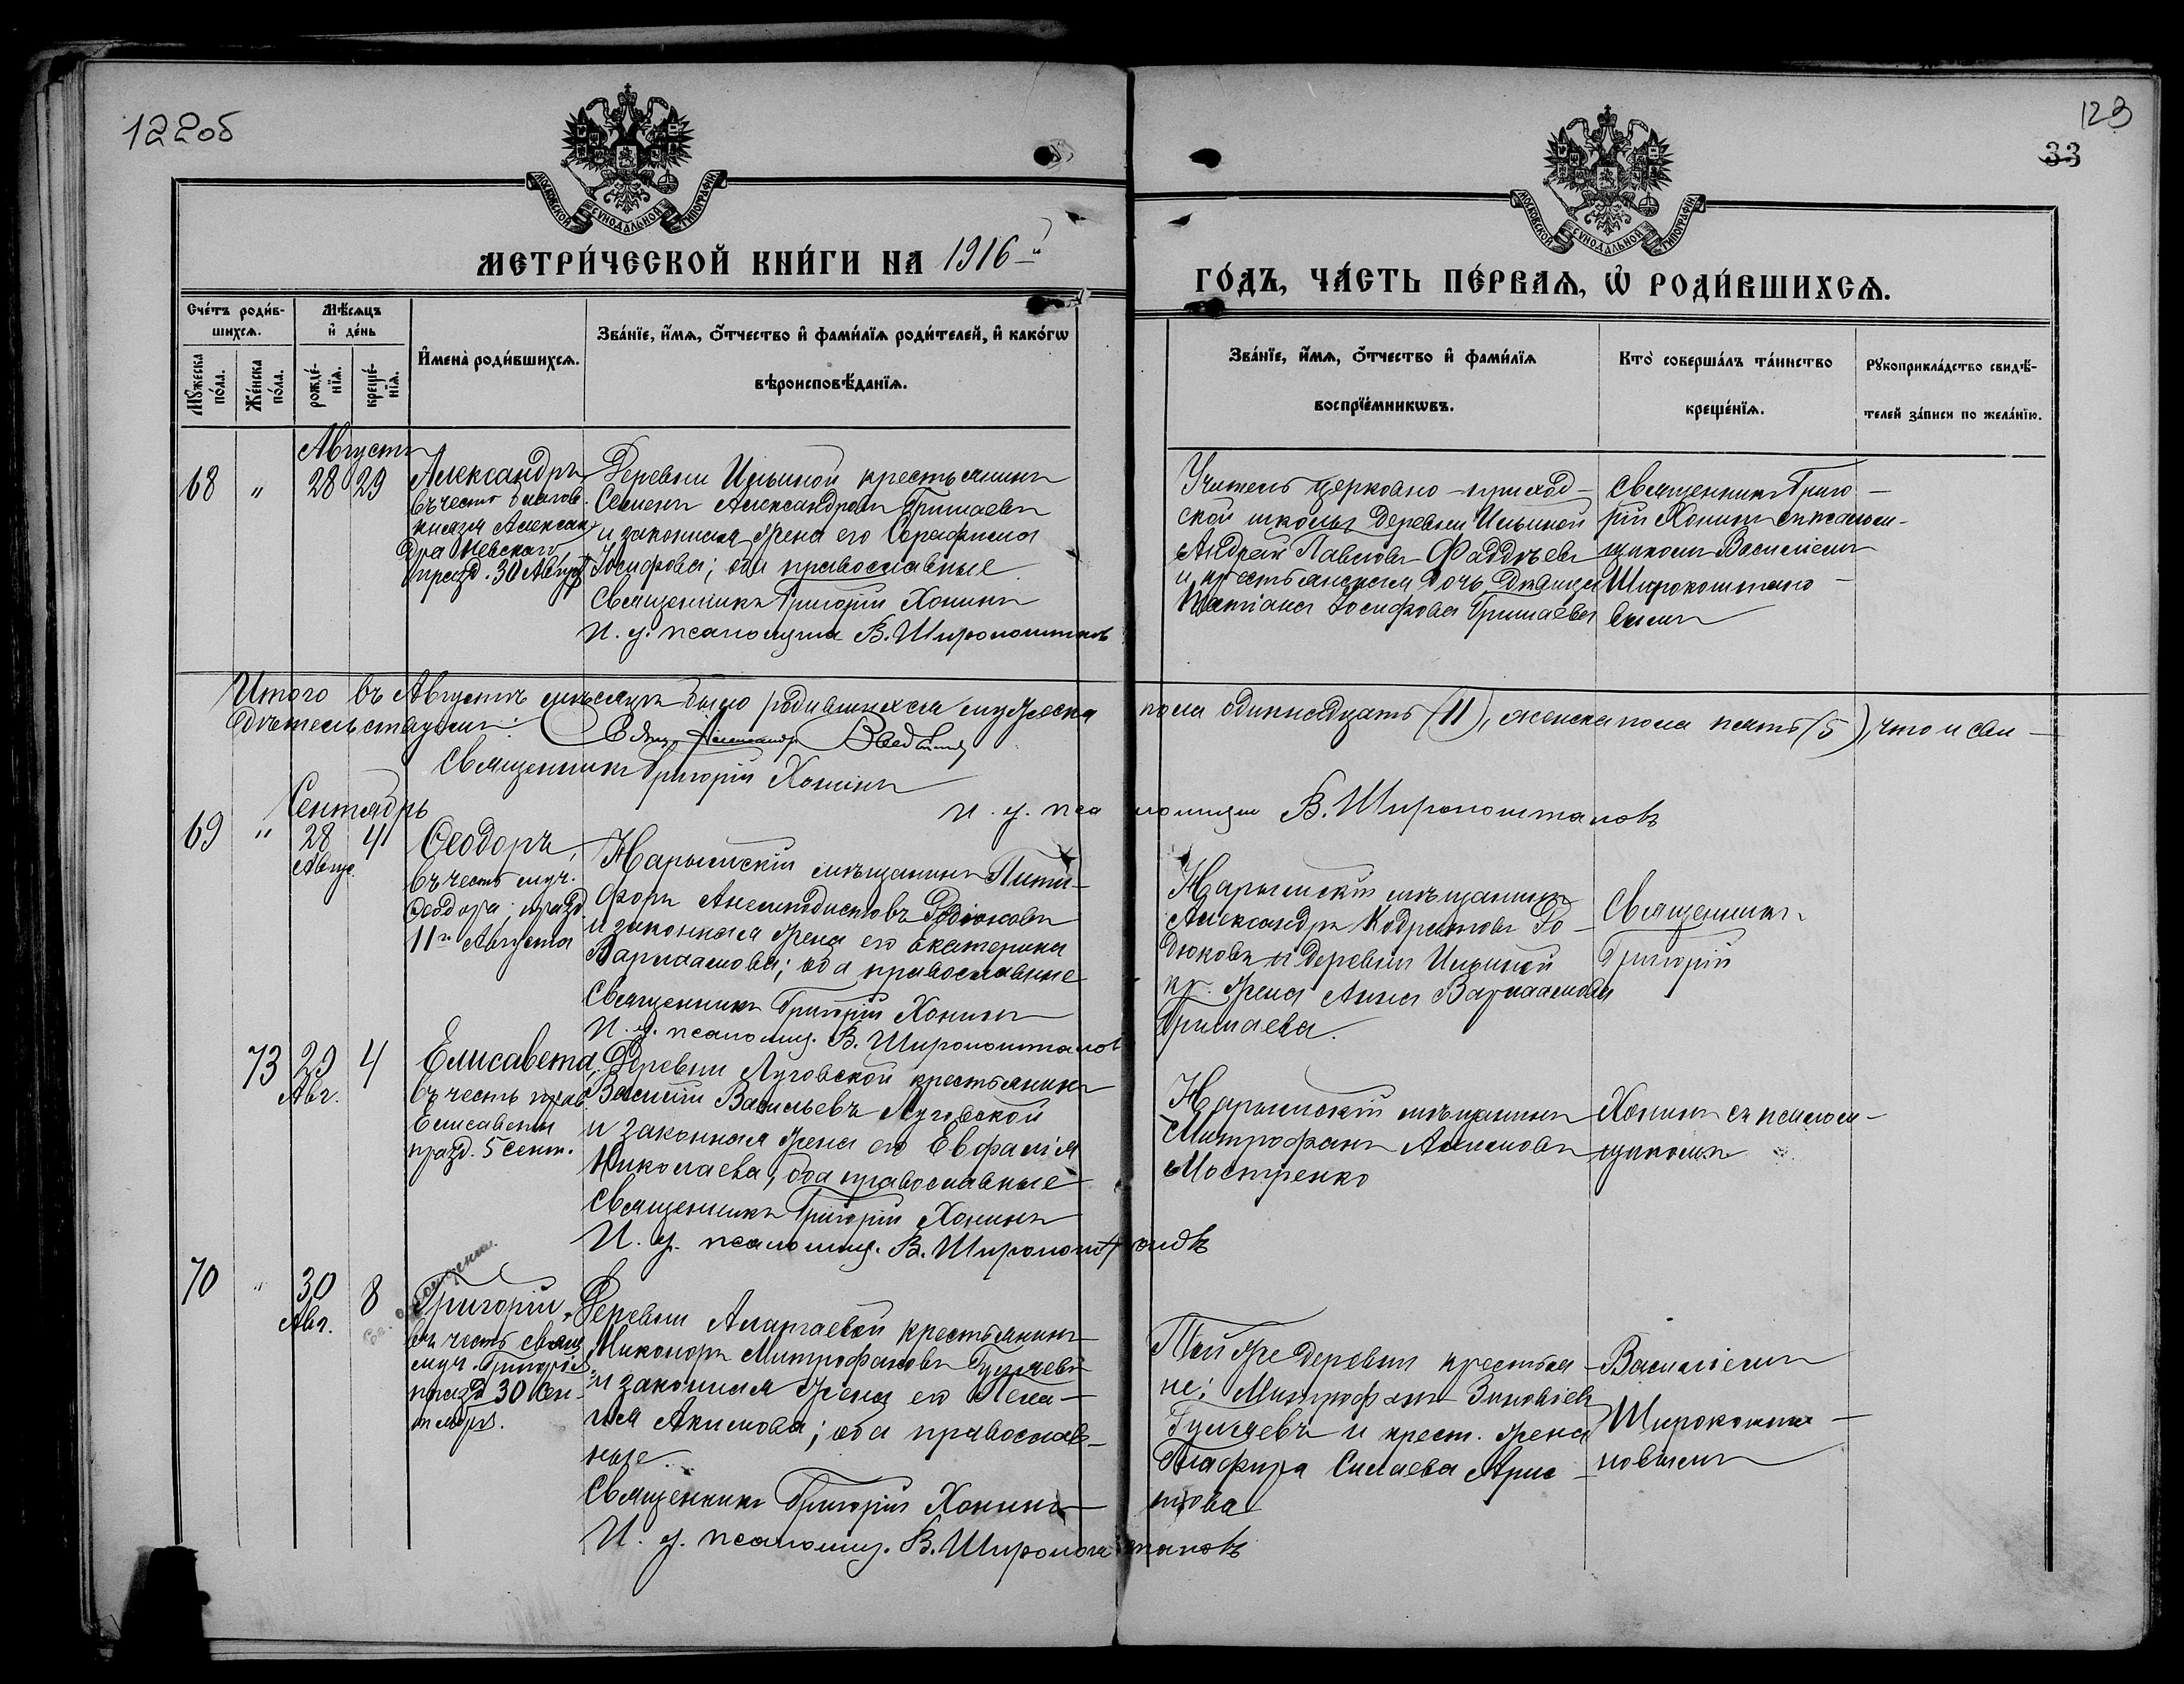 122об
123
33
МОСКОВСКОЙ СѴНОДАЛЬНОЙ ТИПОГРАФІИ
МОСКОВСКОЙ СѴНОДАЛЬНОЙ ТИПОГРАФІИ
МЕТРИ́ЧЕСКОЙ КНИ́ГИ НА 1916-й
ГО́ДЪ, ЧА́СТЬ ПЕ́РВАѦ, Ѿ РОДИ́ВШИХСѦ.
Сче́тъ роди́в-
шихсѧ.
Мꙋ́жеска по́ла.
Же́нска по́ла.
Мѣ́сѧцъ
и҆ де́нь
рожде́-
нїѧ.
креще́-
нїѧ.
И҆мена̀ роди́вшихсѧ.
Зва́нїе, и҆́мѧ, ѻ҆́тчество и҆ фами́лїѧ роди́телей, и҆ како́гѡ
вѣроисповѣ́данїѧ.
Зва́нїе, и҆́мѧ, ѻ҆́тчество и҆ фами́лїѧ
воспрїе́мникѡвъ.
Кто̀ соверша́лъ та́инство
креще́нїѧ.
Рꙋкоприкла́дство свидѣ́-
телей за́писи по жела́нїю.
Августъ
68 " 28 29
Александръ
въ честь благов.
князя Алексан
дра Невскаго,
празд. 30 Август
Деревни Ильиной крестьянинъ
Семенъ Александровъ Гришаевъ
и законная жена его Серафима
Іосифова; оба православные
Священникъ Григорій Хонинъ
И. д. псаломщика В. Широкоштановъ
Учитель церковно-приход-
ской школы деревни Ильиной
Андрей Павловъ Фаддѣевъ
и крестьянская дочь дѣвица
Татіана Іосифова Гришаева
Священникъ Григо-
рій Хонинъ съ псалом-
щикомъ Василіемъ
Широкоштано-
вымъ
Итого въ Августѣ мѣсяцѣ было родившихся мужеска пола одиннадцать (11), женска пола пять (5), что и сви-
дѣтельствуемъ:
Священникъ Григорій Хонинъ
И. д. псаломщи В. Широкоштановъ
Сентябрь
69 " 28 4
Авгус.
Ѳеодоръ,
въ честь муч.
Ѳеодора, празд.
11го Августа
Нарымскій мѣщанинъ
форъ Родюковъ
и законная жена его Екатерина
Варлаамова; оба православные
Священникъ Григорій Хонинъ
И. д. псаломщ. В. Широкоштанов
Нарымскій мѣщанинъ
Александръ Кодратовъ Ро-
дюковъ и деревни Ильиной
кр. жена Анна Варлаамова
Гришаева.
Священникъ
Григорій
73 29 4
Авг.
Елисавета,
въ честь прав.
Елисаветы
празд. 5 сент.
Деревни Луговской крестьянинъ
Василій Васильевъ Луговской
и законная жена его Евфалія
Николаева, оба православные
Священникъ Григорій Хонинъ
И. д. псаломщ. В. Широкоштановъ
Нарымскій мѣщанинъ
Митрофанъ Акимовъ
Мостренко
Хонинъ съ псалом-
щикомъ
70 " 30 8
Авг.
Григорій,
въ честь свящ
муч. Григорія
празд 30 Сен-
тября.
Деревни Алатаевой крестьянинъ
Никоноръ Митрофановъ Гуляевъ
и законная жена его Пела-
гія Акимова; оба православ-
ные.
Священникъ Григорій Хонинъ
И. д. псаломщ. В. Широкоштановъ
Той же деревни крестья-
не: Митрофанъ Зиновіевъ
Гуляевъ и крест. жена
Глафира Силаева Арис
това
Василіемъ
Широкошта-
новымъ